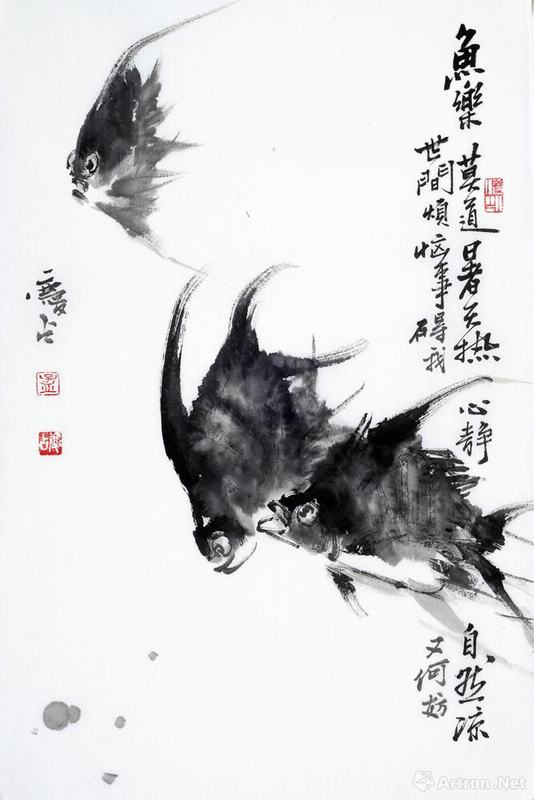 魚樂
莫道暑天热
心静
自然涼
世間煩恼事碍我
又何妨
慶占
Artron.Net